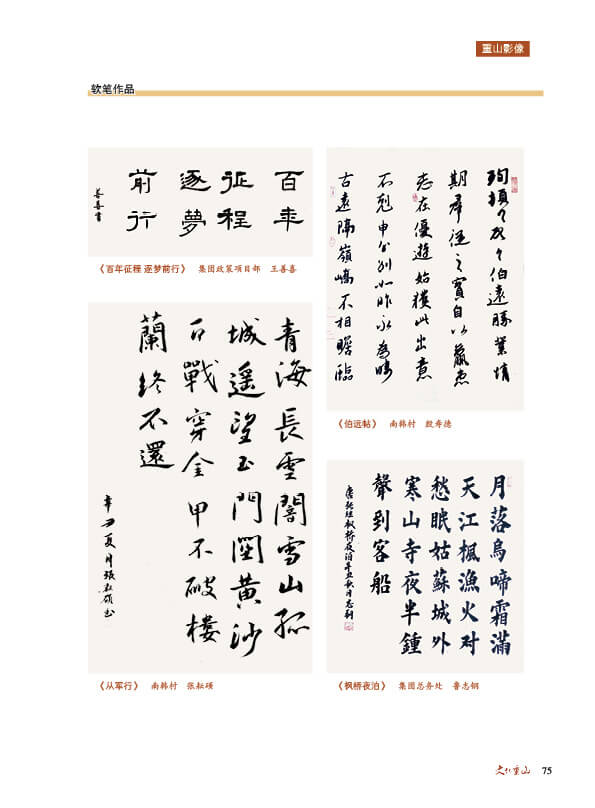 重山影像
软笔作品
百年
征程
逐夢
前行
善喜書
《百年征程 逐梦前行》 集团政策项目部 王善喜
珣頓首頓首伯遠勝業情
期羣從之寶自以羸患
志在優遊始獲此出意
不剋申分別如昨永為疇
古遠隔嶺嶠不相瞻臨
《伯远帖》 南韩村 殷寿德
青海長雲闇雪山孤
城遥望玉門關黄沙
百戰穿金甲不破樓
蘭終不還
辛丑夏月張耘碩书
《从军行》 南韩村 张耘硕
月落烏啼霜滿
天江楓漁火对
愁眠姑蘇城外
寒山寺夜半鍾
聲到客船
唐張继枫桥夜泊辛丑秋月志钢
《枫桥夜泊》 集团总务处 鲁志钢
文化重山 75